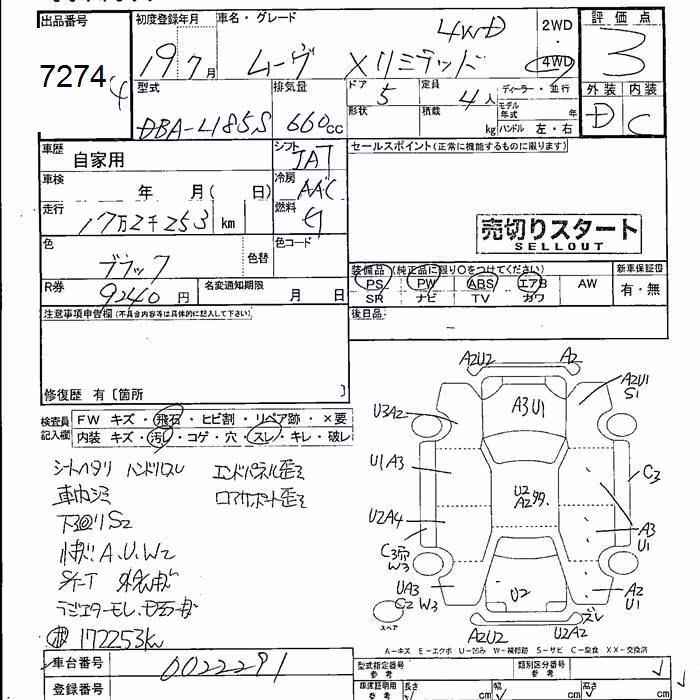 出品番号
7274
初度登録年月
19 7月
車名・グレード
ムーヴ Xリミテッド 4WD
2WD
・
4WD
評価点
3
型式
DBA-L185S
排気量
660cc
ドア 5
形状
定員
4人
積載
kg
ディーラー・並行
モデル年式 年
ハンドル 左・右
外装 内装
D C
車歴
自家用
シフト
車検
年 月( 日)
冷房
AAC
走行
17万2千253 km
燃料
色
ブラック
色替
色コード
R券
9240円
名変通知期限
月 日
セールスポイント(正常に機能するものに限ります)
売切りスタート
SELLOUT
装備品 (純正品に限り○をつけてください)
PS PW ABS エアB AW
SR ナビ TV カワ
新車保証書
有・無
後日品
注意事項申告欄(不具合内容等は具体的に記入して下さい)
修復歴 有〔箇所 〕
検査員
記入欄
FW キズ・飛石・ヒビ割・リペア跡・×要
内装 キズ・汚れ・コゲ・穴・スレ・キレ・破レ
シートヘタリ ハンドルスレ エンドパネル歪ミ
車内シミ ロアサポート歪ミ
下回りS2
A.U.W2
172253km
車台番号
0022291
登録番号
A2U2 A2
U3A2 A3U1 A2U1
S1
U1A3 C3
U2
A2 99.
U2A4 A3
U1
C3穴
W3
UA3
C2 W3 U2 A2
U1
スペア A2U2 U2A2 ズレ
A-キズ E-エクボ U-凹み W-補修跡 S-サビ C-腐食 XX-交換済
型式指定番号
参考
類別区分番号
参考
車庫証明用
参考
長さ cm 幅 cm 高さ cm